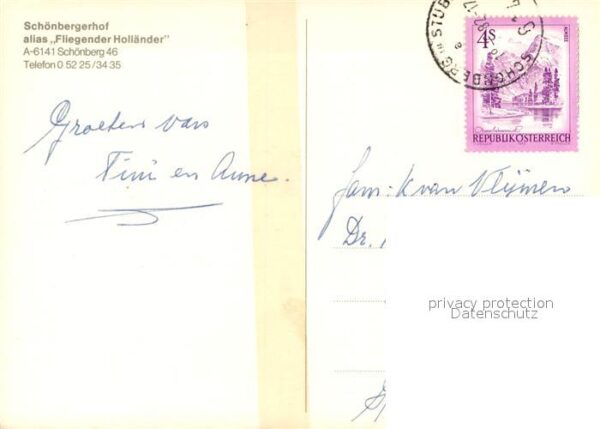 Schönbergerhof
alias „Fliegender Holländer"
A-6141 Schönberg 46
Telefon 0 52 25 / 34 35
Groeten van
Tini en Anne.
4S
ALMSEE
REPUBLIK ÖSTERREICH
SCHÖNBERG im STUB
Fam. K van Vlijmen
Dr.
privacy protection
Datenschutz